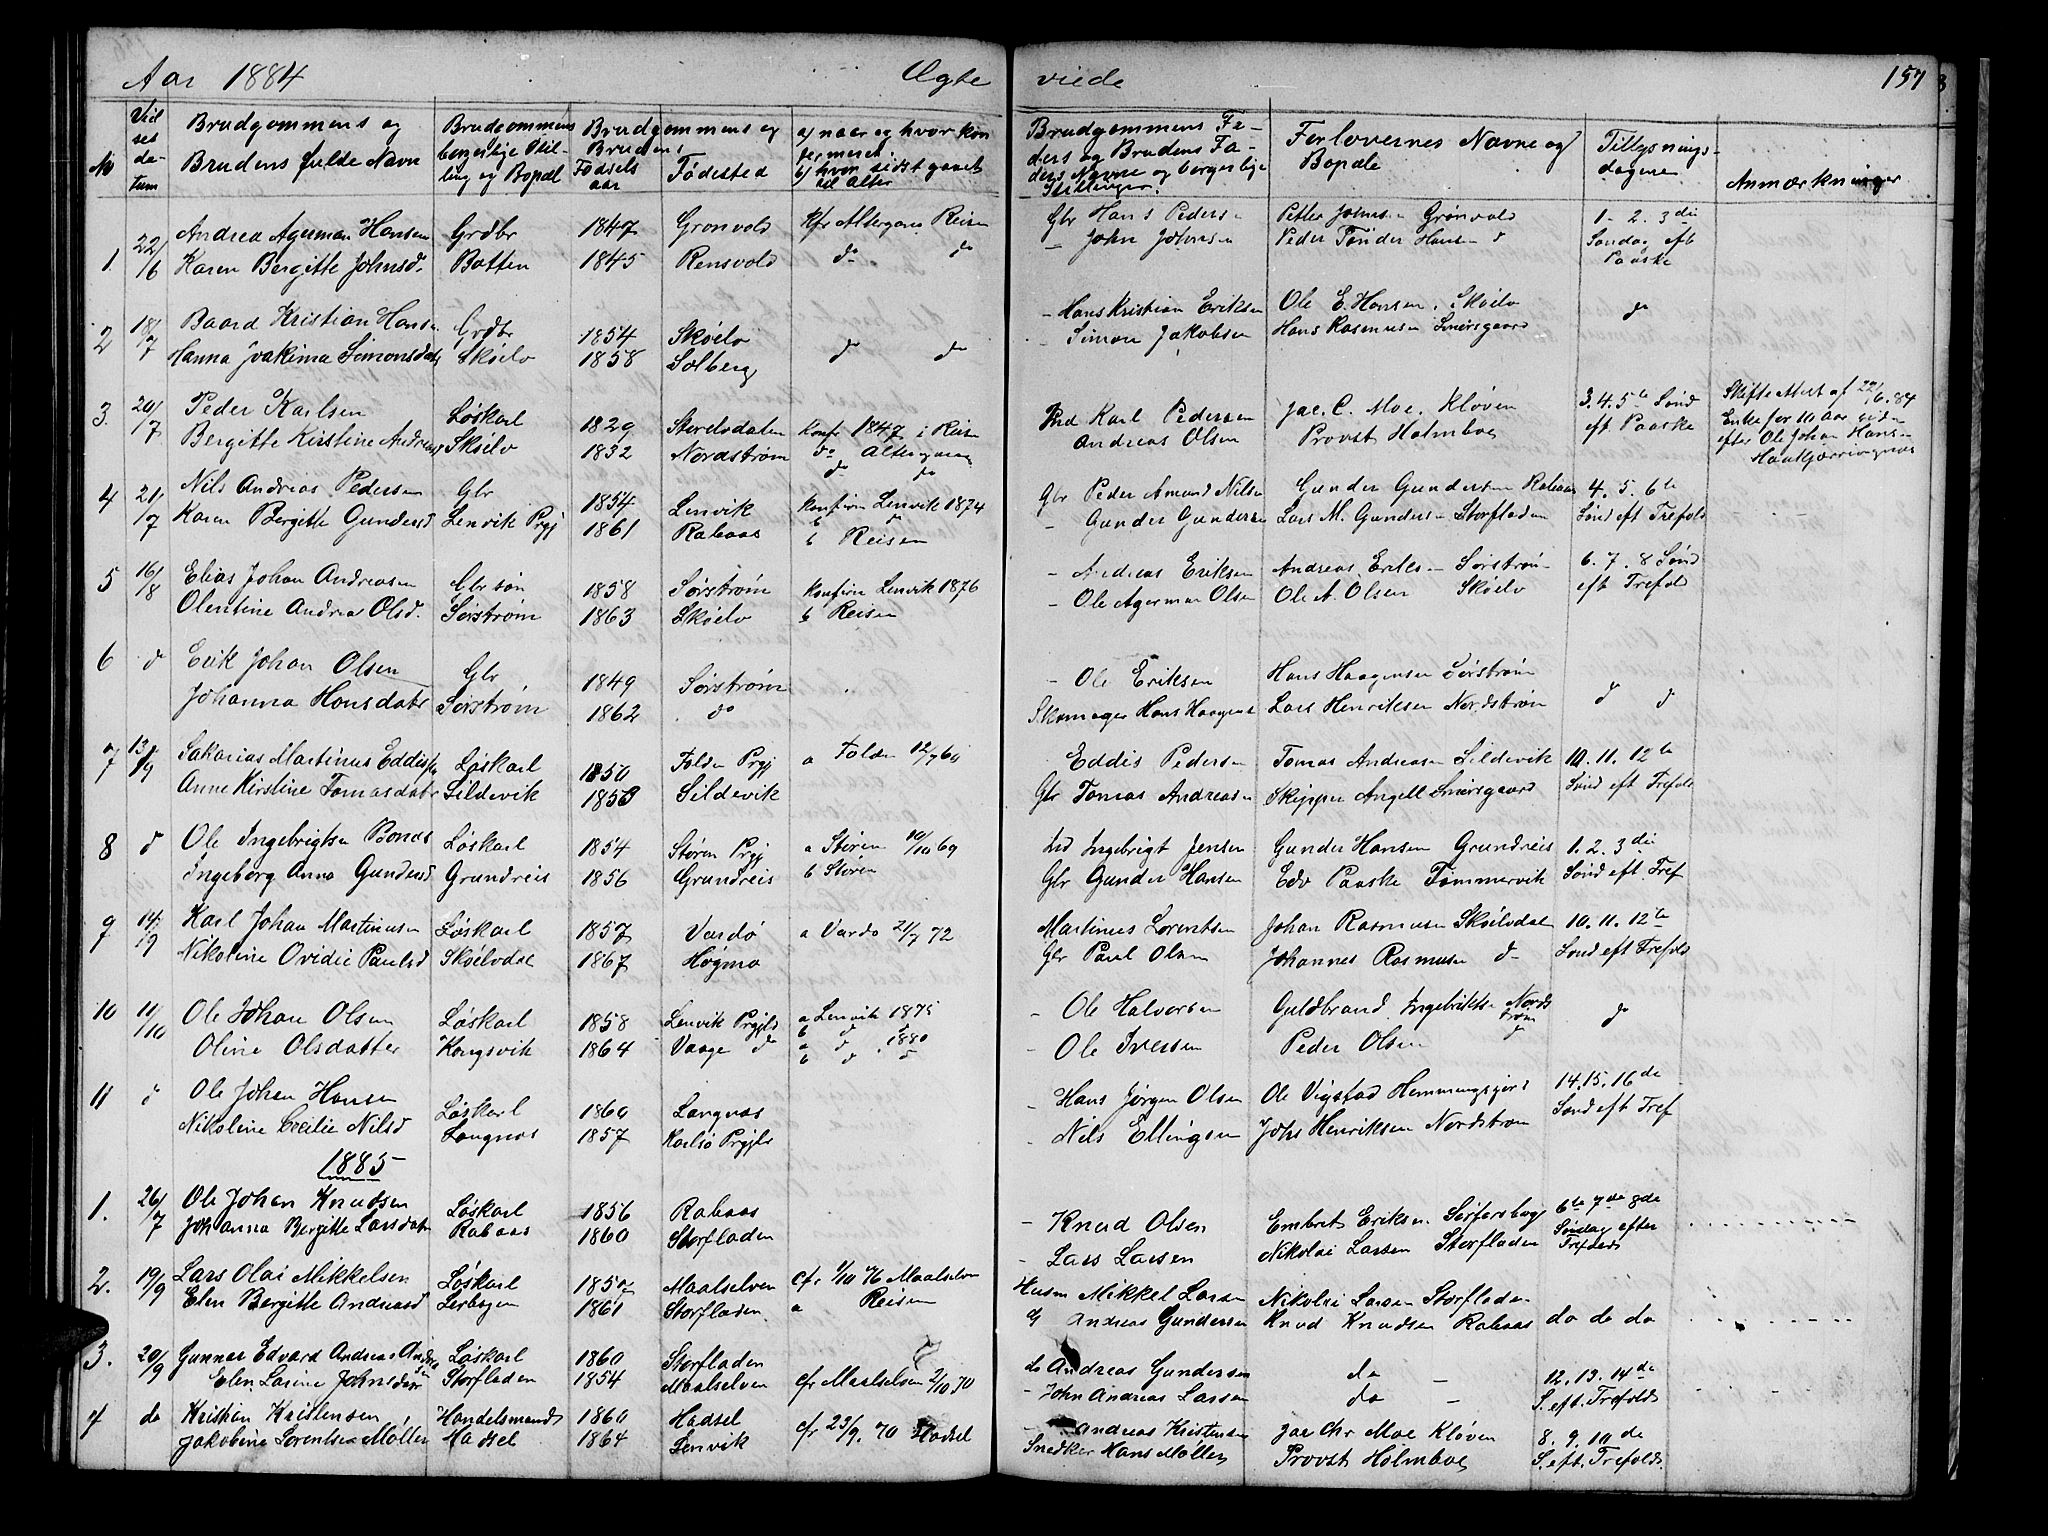 Aar 1884 Ægte viede 157
No Vielsesdatum Brudgommens og Brudens fulde Navn Brudgommens borgerlige Stilling og Bopæl Brudgommens og Brudens Fødselsaar Fødested a) naar og hvor konfirmeret b) hvor sidst gaaet til Alter Brudgommens Faders og Brudens Faders Navne og borgerlige Stillinger. Forlovernes Navne og Bopæle Tillysningsdagene Anmærkninger
1. 22/6 Andrea Agerman Hansen Grdbr 1847 Grønvold Kfr Altergang Reisen Gbr Hans Peders- Petter Johnsen Grønvold 1- 2. 3die
Karen Bergitte Johnsd. Botten 1845 Rensvold do do - John Johnsen Peder Tønder Hansen d Søndag eft Paaske
2 18/7 Baard Kristian Hans- Grdbr 1854 Skøelv - Hans Kristian Eriksen Ole E. Hansen. Skøelv do
Hanna Joakima Simonsdatr Skøelv 1858 Solberg do do - Simon Jakobsen Hans Rasmusen Smørsgaard
3. 20/7 Peder Karlsen Løskarl 1829 Stordsdalen Konfr 1847 i Reisen Ind Karl Pedersen Jac. C. Moe. Kløven 3. 4. 5te Sønd Skifte Attest af 22/6. 84
Bergitte Kirstine Andreasd Skøelv 1832 Nordstrøm do Altergang Andreas Olsen Provst Holmboe eft Paaske Enke for 11 Aar siden
do do efter Ole Johan Hans-
4 21/7 Nils Andrias Pedersen Gbr 1854 Lenvik Konfirm Lenvik 1874 Gbr Peder Amund Nilsen Gunder Gundersen Rabaas 4. 5. 6te
Karen Bergitte Gundersd Lenvik Prgj 1861 Rabaas b do - Gunder Gundersen Lars M. Gunders- Storfladen Sønd eft Trefold
b Reisen
5 16/8 Elias Johan Andreasen Gbr søn 1858 Sørstrøm Konfirm Lenvik 1876 - Andreas Eriksen Andreas Eriks- Sørstrøm 6. 7. 8 Sønd
Olentine Andrea Olsd. Sørstrøm 1863 Skøelv b Reisen - Ole Agerman Olsen Ole A. Olsen Skøelv eft Trefold
6 d Erik Johan Olsen Gbr 1849 Sørstrøm - Ole Eriksen Hans Haagensen Sørstrøm
Johanna Hansdatr Sørstrøm 1862 do Skomager Hans Haagens- Lars Henriksen Nordstrøm d d
7 13/9 Sakarias Martinus Eddis- Løskarl 1850 Folden Prgj a Folden 12/7 60 Eddis Pedersen Tomas Andreasen Sildevik 10. 11. 12te
Anne Kirstine Tomasdatr Sildevik 1853 Sildevik Gbr Tomas Andreas- Skipper Angell Smørsgaard Sønd eft Trefold
8 d Ole Ingebrigtsen Bonaas Løskarl 1854 Støren Prgj a Støren 10/10 69 Ind Ingebrigt Jensen Gunder Hansen Grundreis 1. 2. 3die
Ingeborg Anna Gundersd Grundreis 1856 Grundreis b Støren Gbr Gunder Hansen Edv Paaske Tømmervik Sønd eft. Tref
9 14/9 Karl Johan Martinusen Løskarl 1857 Vardø a Vardø 21/7 72 Martinus Lorentsen Johan Rasmusen Skøelvdal 10. 11. 12te
Nikoline Ovidie Paulsd Skøelvdal 1867 Høgmo Gbr Paul Olsen Johannes Rasmusen d- Sønd eft Trefold
10 11/10 Ole Johan Olsen Løskarl 1858 Lenvik Prgjld a Lenvik 1875 - Ole Halvorsen Guldbrand Ingebrikts- Nordstrøm do
b d
Oline Olsdatter Kongsvik 1864 Vaage do a d 1880 - Ole Iversen Peder Olsen d
b d d
11 d Ole Johan Hansen Løskarl 1860 Langnæs - Hans Jørgen Olsen Ole Vigstad Hemmingsjord 14. 15. 16de
Nikoline Cecilie Nilsd Langnæs 1857 Karlsø Prgjld - Nils Ellingsen Johs Henriksen Nordstrøm Sønd eft Tref
1885
1. 26/7 Ole Johan Knudsen Løskarl 1856 Rabaas - Knud Olsen Embret Eriksen Sørforsbag 6te 7de 8de
Johanna Bergitte Larsdatr Rabaas 1860 Storfladen - Lars Larsen Nikolai Larsen Storfladen Søndag efter Trefoldd
2. 19/9 Lars Olai Mikkelsen Løskarl 1857 Maalselven cfr 1/10 76 Maalselven Husm Mikkel Larsen Nikolai Larsen Storfladen
Elen Bergitte Andreasd Lerbogen 1861 Storfladen. a Reisen G Andreas Gundersen Knud Knudsen Rabaas do do do
3. 20/9 Gunnar Edvard Andreas Andreasen Løskarl 1860 Storfladen do Andreas Gundersen do - 12. 13. 14de
Elen Larine Johnsdatr Storfladen 1854 Maalselven cfr Maalselven 2/10 70 - John Andreas Larsen do - S. eft. Trefold
4 do Kristian Kristensen, Handelsmand 1860 Hadsel cfr 23/9. 70 Hadsel - Andreas Kristensen Jac Chr Moe Kløven 8. 9. 10de
Jakobine Lorentse Møller Hadsel 1864 Lenvik Snedker Hans Møller Provst Holmboe S. eft. Trefold.